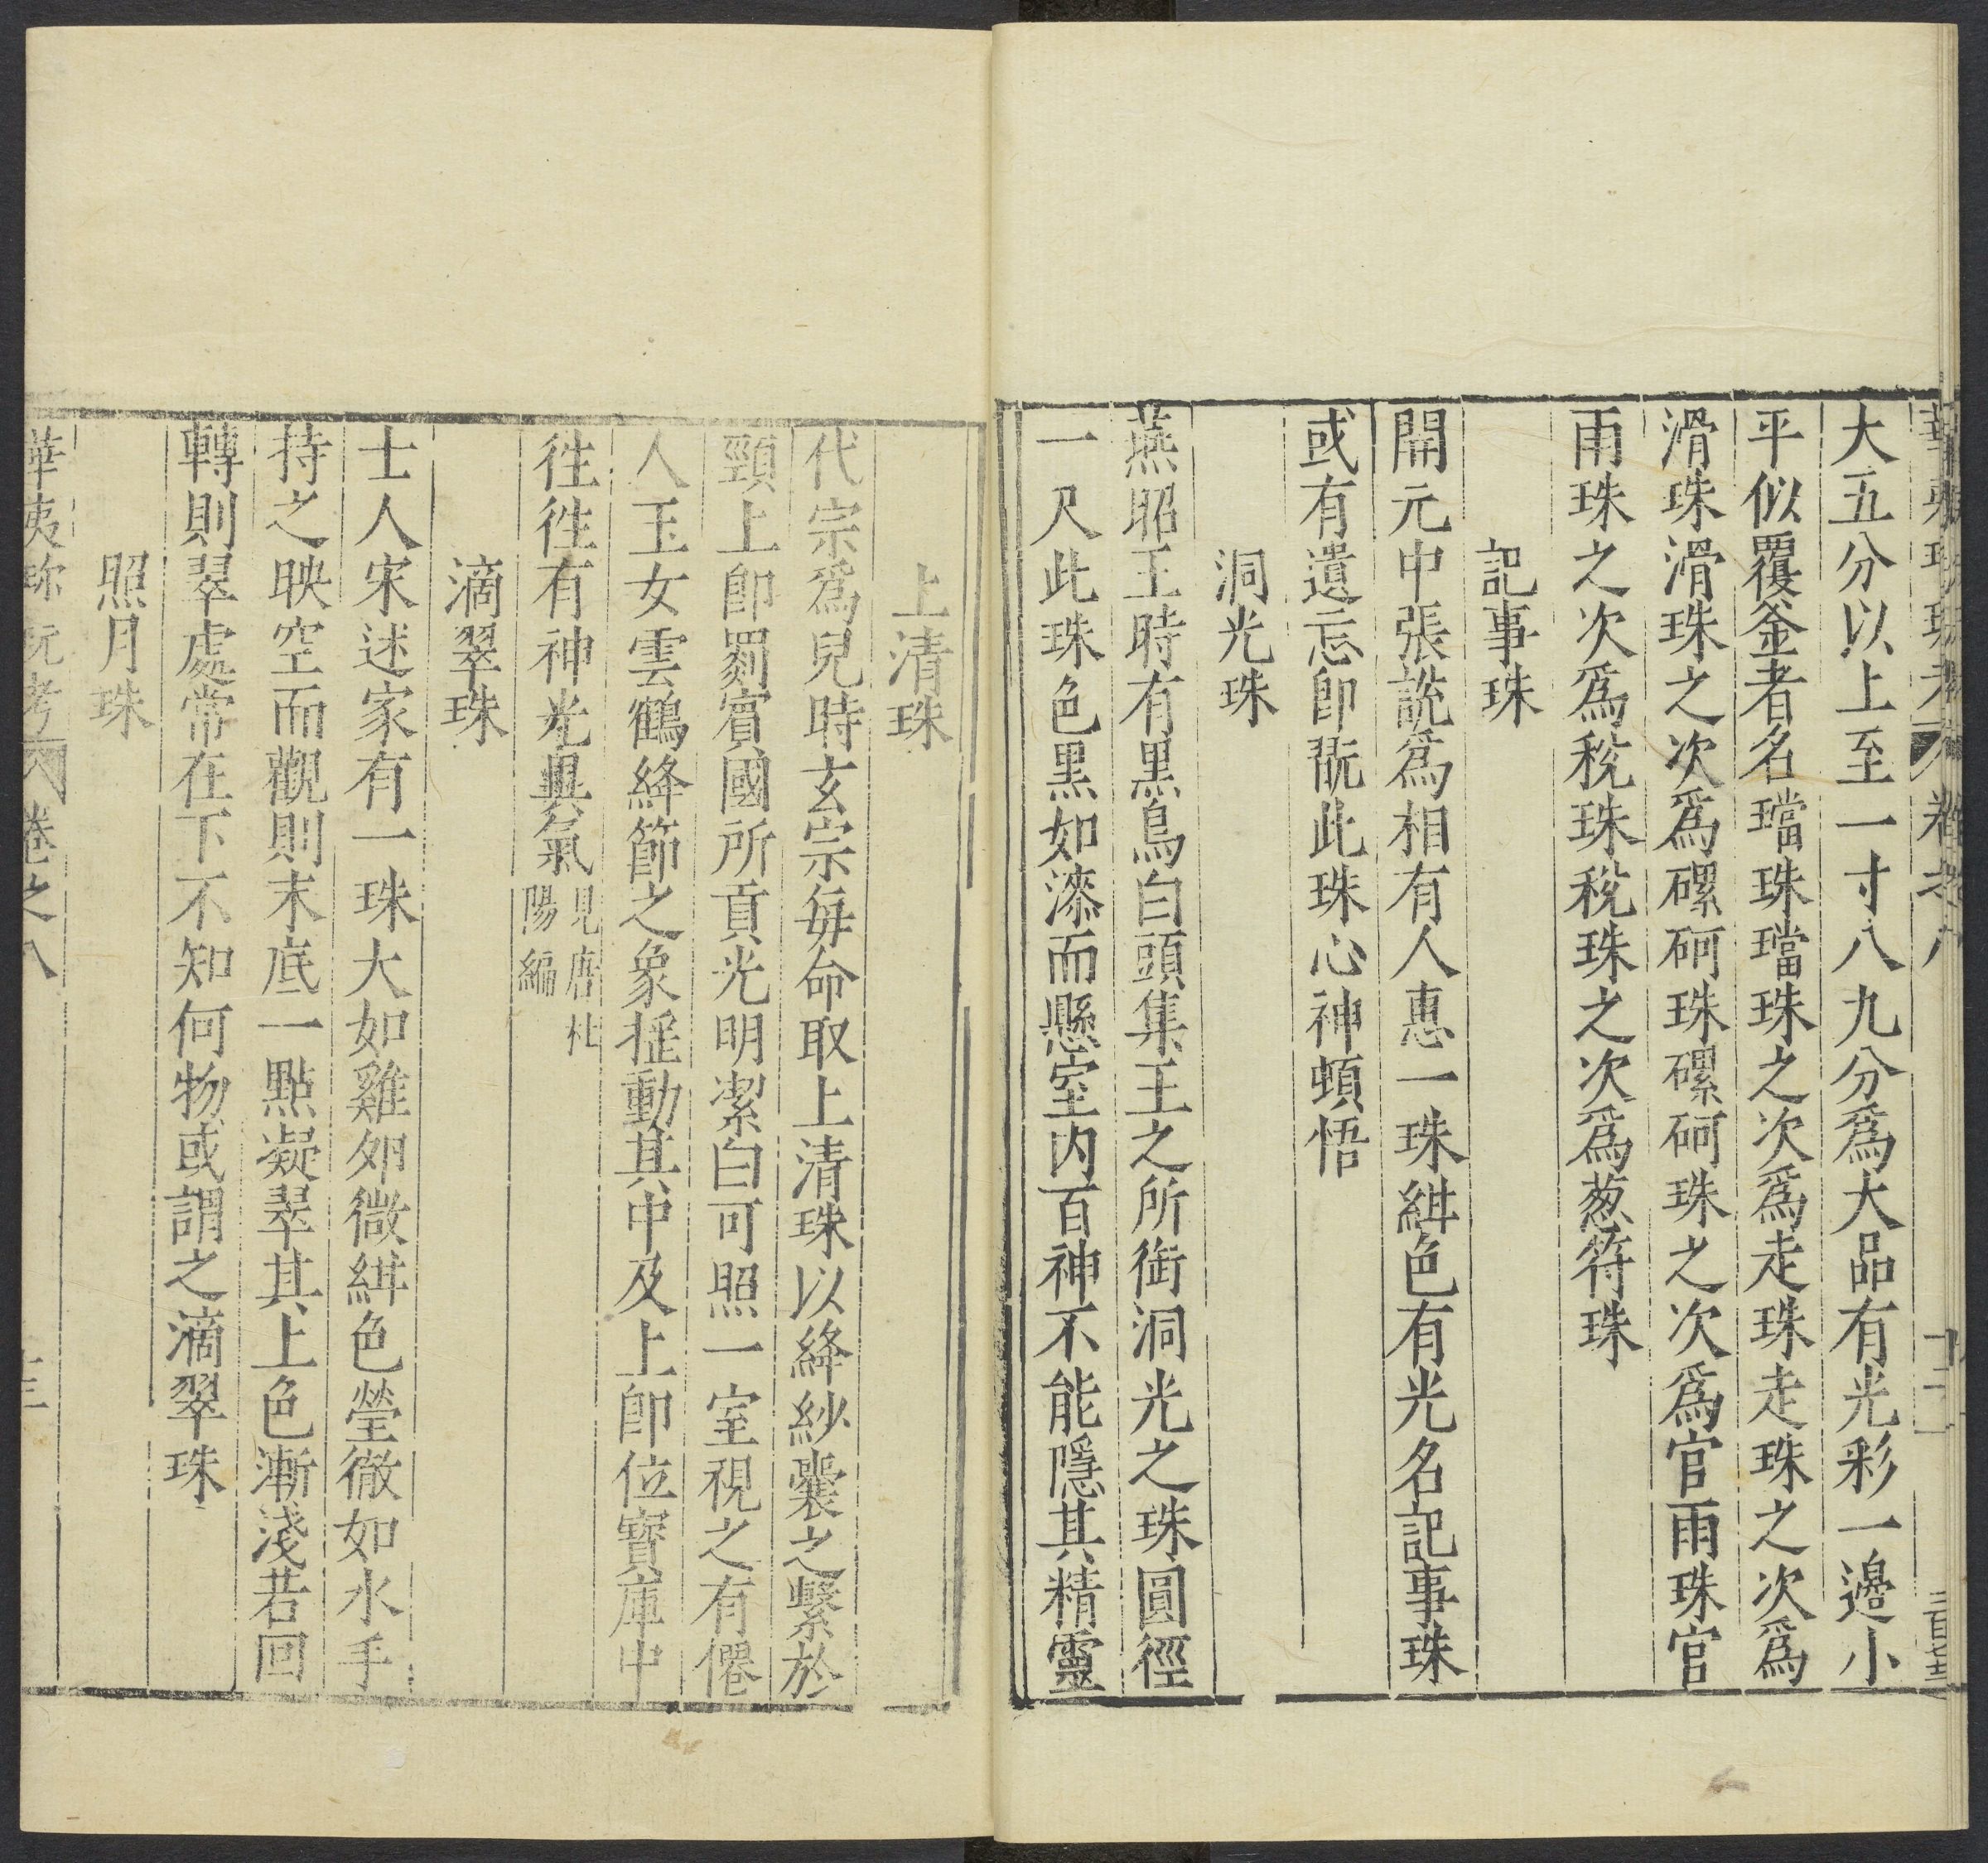 大五分以上至一寸八九分爲大品有光彩一邊小
平似覆釜者名璫珠璫珠之次爲走珠走珠之次爲
滑珠滑珠之次爲磥砢珠磥砢珠之次爲官雨珠官
雨珠之次爲稅珠稅珠之次爲葱符珠
記事珠
開元中張說爲相有人惠一珠紺色有光名記事珠
或有遺忘卽翫此珠心神頓悟
洞光珠
燕昭王時有黑鳥白頭集王之所銜洞光之珠圓徑
一尺此珠色黑如漆而懸室内百神不能隱其精靈
上清珠
代宗爲兒時玄宗每命取上清珠以絳紗裹之繫於
頸上卽罽賓國所貢光明潔白可照一室視之有僊
人玉女雲鶴絳節之象揺動其中及上卽位寶庫中
徃徃有神光異氣見唐杜陽編
滴翠珠
士人宋述家有一珠大如雞夘微紺色瑩徹如水手
持之映空而觀則末底一點凝翠其上色漸淺若回
轉則翠處常在下不知何物或謂之滴翠珠
照月珠
華夷珎玩考 卷之八 十三